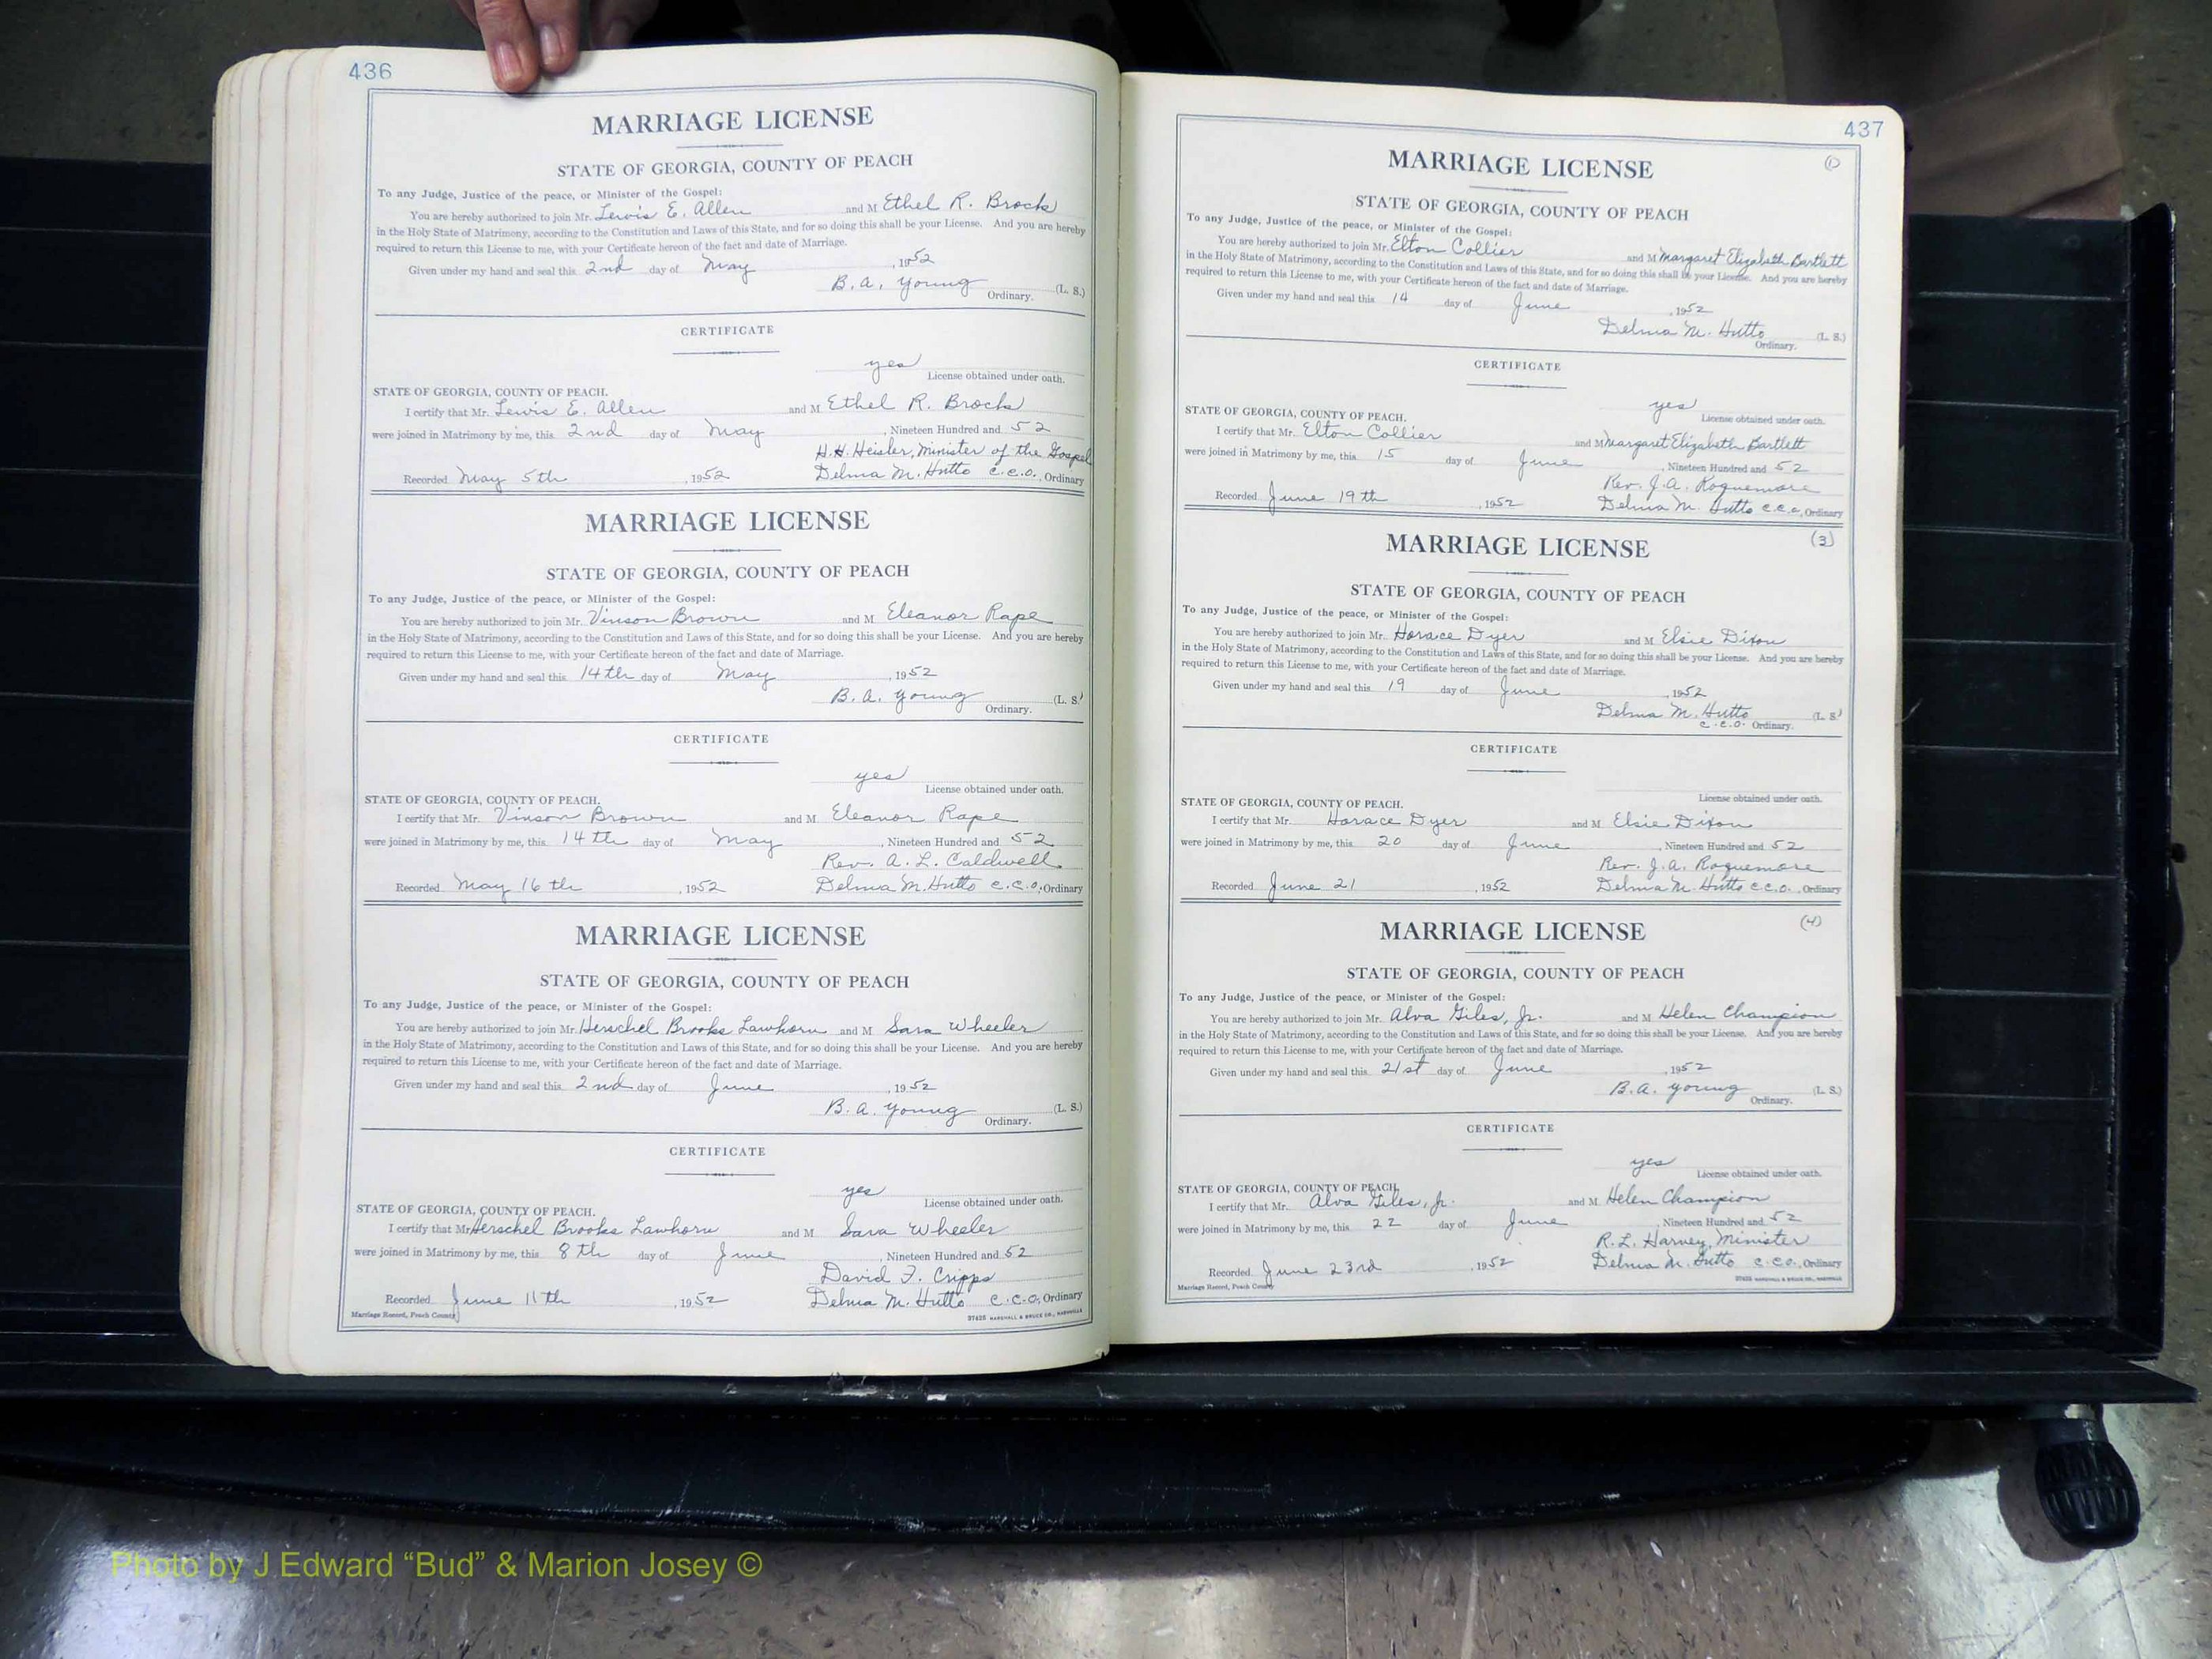 436
MARRIAGE LICENSE
STATE OF GEORGIA, COUNTY OF PEACH
To any Judge, Justice of the peace, or Minister of the Gospel:
You are hereby authorized to join Mr. Lewis E. Allen and M Ethel R. Brock
in the Holy State of Matrimony, according to the Constitution and Laws of this State, and for so doing this shall be your License. And you are hereby
required to return this License to me, with your Certificate hereon of the fact and date of Marriage.
Given under my hand and seal this 2nd day of May , 1952
B. A. Young (L. S.)
Ordinary.
CERTIFICATE
yes
License obtained under oath.
STATE OF GEORGIA, COUNTY OF PEACH.
I certify that Mr. Lewis E. Allen and M Ethel R. Brock
were joined in Matrimony by me, this 2nd day of May , Nineteen Hundred and 52
H. H. Heisler, Minister of the Gospel
Recorded May 5th , 1952 Delma M. Hutto c.c.o., Ordinary
MARRIAGE LICENSE
STATE OF GEORGIA, COUNTY OF PEACH
To any Judge, Justice of the peace, or Minister of the Gospel:
You are hereby authorized to join Mr. Vinson Brown and M Eleanor Rape
in the Holy State of Matrimony, according to the Constitution and Laws of this State, and for so doing this shall be your License. And you are hereby
required to return this License to me, with your Certificate hereon of the fact and date of Marriage.
Given under my hand and seal this 14th day of May , 1952
B. A. Young (L. S.)
Ordinary.
CERTIFICATE
yes
License obtained under oath.
STATE OF GEORGIA, COUNTY OF PEACH.
I certify that Mr. Vinson Brown and M Eleanor Rape
were joined in Matrimony by me, this 14th day of May , Nineteen Hundred and 52
Rev. A. L. Caldwell
Recorded May 16th , 1952 Delma M. Hutto c.c.o., Ordinary
MARRIAGE LICENSE
STATE OF GEORGIA, COUNTY OF PEACH
To any Judge, Justice of the peace, or Minister of the Gospel:
You are hereby authorized to join Mr. Herschel Brooks Lawhorn and M Sara Wheeler
in the Holy State of Matrimony, according to the Constitution and Laws of this State, and for so doing this shall be your License. And you are hereby
required to return this License to me, with your Certificate hereon of the fact and date of Marriage.
Given under my hand and seal this 2nd day of June , 1952
B. A. Young (L. S.)
Ordinary.
CERTIFICATE
yes
License obtained under oath.
STATE OF GEORGIA, COUNTY OF PEACH.
I certify that Mr. Herschel Brooks Lawhorn and M Sara Wheeler
were joined in Matrimony by me, this 8th day of June , Nineteen Hundred and 52
David F. Cripps
Recorded June 11th , 1952 Delma M. Hutto c.c.o., Ordinary
Marriage Record, Peach County 37425 MARSHALL & BRUCE CO., NASHVILLE
437
(1)
MARRIAGE LICENSE
STATE OF GEORGIA, COUNTY OF PEACH
To any Judge, Justice of the peace, or Minister of the Gospel:
You are hereby authorized to join Mr. Elton Collier and M Margaret Elizabeth Bartlett
in the Holy State of Matrimony, according to the Constitution and Laws of this State, and for so doing this shall be your License. And you are hereby
required to return this License to me, with your Certificate hereon of the fact and date of Marriage.
Given under my hand and seal this 14 day of June , 1952
Delma M. Hutto (L. S.)
Ordinary.
CERTIFICATE
yes
License obtained under oath.
STATE OF GEORGIA, COUNTY OF PEACH.
I certify that Mr. Elton Collier and M Margaret Elizabeth Bartlett
were joined in Matrimony by me, this 15 day of June , Nineteen Hundred and 52
Rev. J. A. Roquemore
Recorded June 19th , 1952 Delma M. Hutto c.c.o., Ordinary
(3)
MARRIAGE LICENSE
STATE OF GEORGIA, COUNTY OF PEACH
To any Judge, Justice of the peace, or Minister of the Gospel:
You are hereby authorized to join Mr. Horace Dyer and M Elsie Dixon
in the Holy State of Matrimony, according to the Constitution and Laws of this State, and for so doing this shall be your License. And you are hereby
required to return this License to me, with your Certificate hereon of the fact and date of Marriage.
Given under my hand and seal this 19 day of June , 1952
Delma M. Hutto (L. S.)
c.c.o. Ordinary.
CERTIFICATE
License obtained under oath.
STATE OF GEORGIA, COUNTY OF PEACH.
I certify that Mr. Horace Dyer and M Elsie Dixon
were joined in Matrimony by me, this 20 day of June , Nineteen Hundred and 52
Rev. J. A. Roquemore
Recorded June 21 , 1952 Delma M. Hutto c.c.o., Ordinary
(4)
MARRIAGE LICENSE
STATE OF GEORGIA, COUNTY OF PEACH
To any Judge, Justice of the peace, or Minister of the Gospel:
You are hereby authorized to join Mr. Alva Giles, Jr. and M Helen Champion
in the Holy State of Matrimony, according to the Constitution and Laws of this State, and for so doing this shall be your License. And you are hereby
required to return this License to me, with your Certificate hereon of the fact and date of Marriage.
Given under my hand and seal this 21st day of June , 1952
B. A. Young (L. S.)
Ordinary.
CERTIFICATE
yes
License obtained under oath.
STATE OF GEORGIA, COUNTY OF PEACH.
I certify that Mr. Alva Giles, Jr. and M Helen Champion
were joined in Matrimony by me, this 22 day of June , Nineteen Hundred and 52
R. L. Harvey, Minister
Recorded June 23rd , 1952 Delma M. Hutto c.c.o., Ordinary
Marriage Record, Peach County 37425 MARSHALL & BRUCE CO., NASHVILLE
Photo by J Edward “Bud” & Marion Josey ©